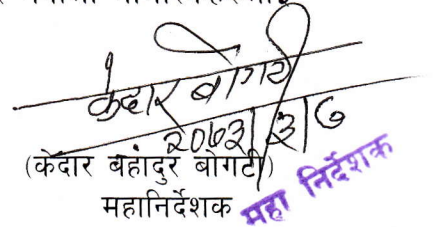 केदार बोगटी
२०७३/३/७
(केदार बहादुर बोगटी)
महानिर्देशक महा निर्देशक